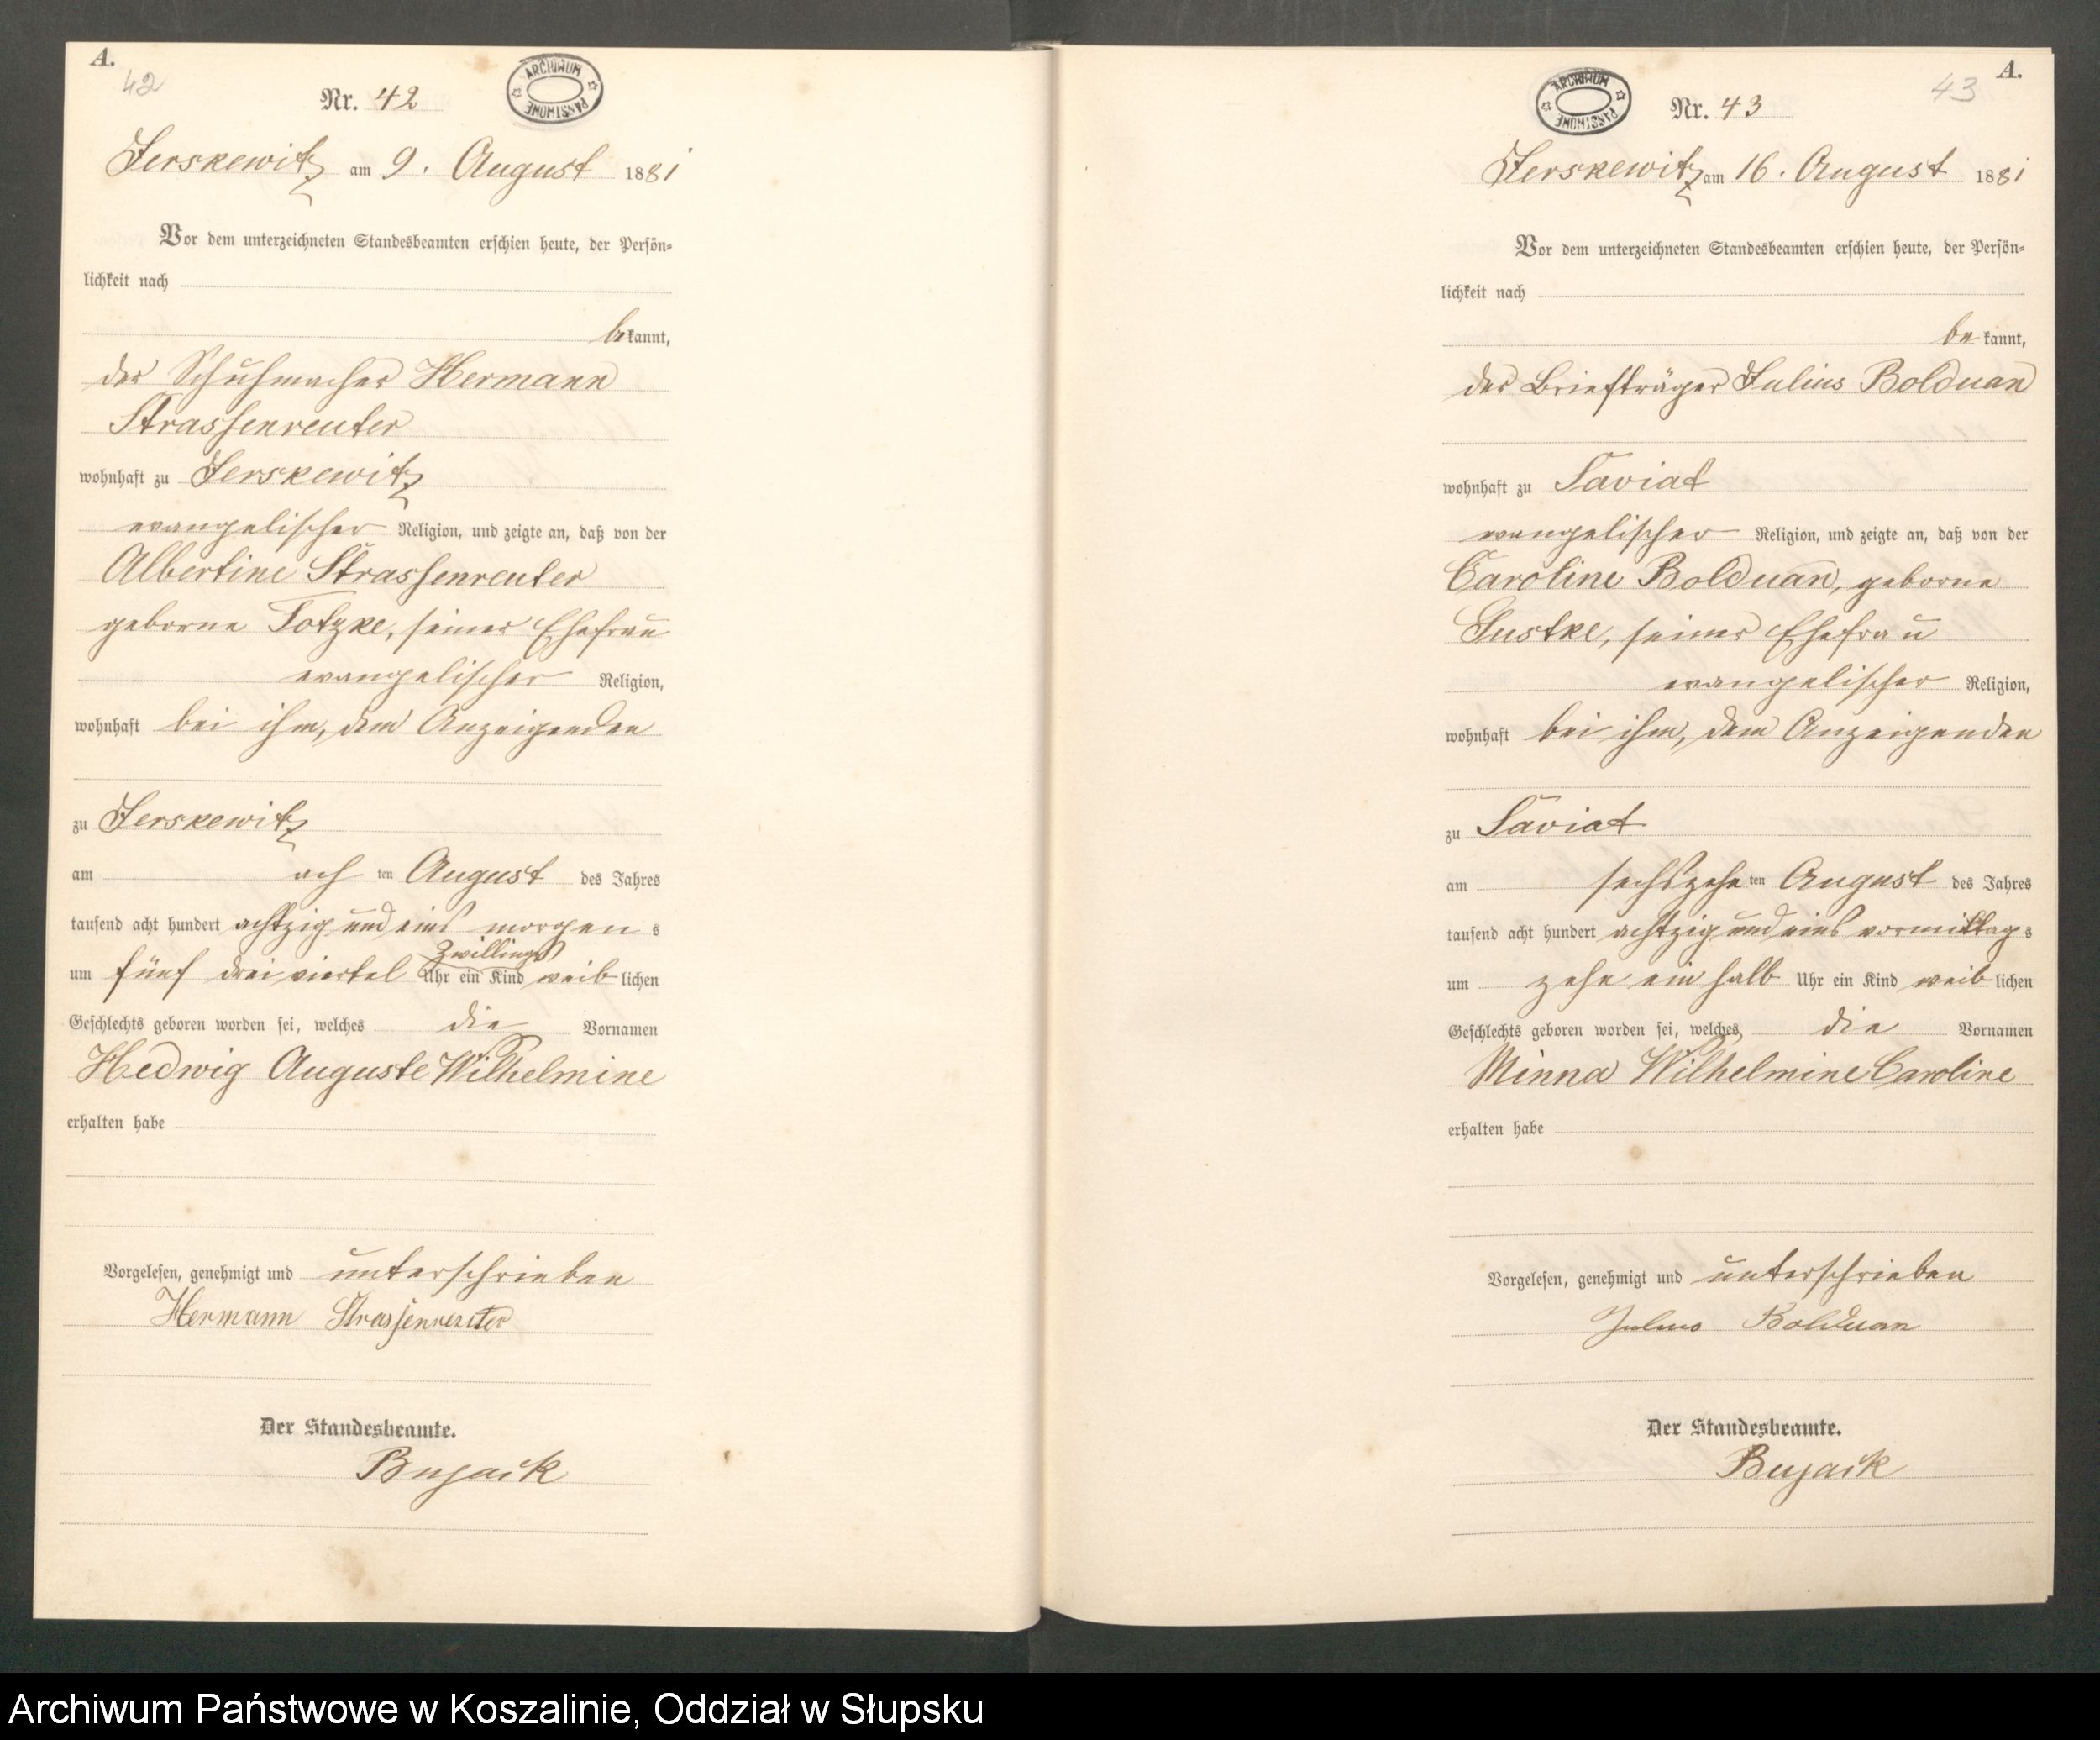 A.
42
Nr. 42
ARCHIWUM PAŃSTWOWE
Jerskewitz am 9. August 1881
Vor dem unterzeichneten Standesbeamten erschien heute, der Persön-
lichkeit nach
bekannt,
der Schuhmacher Hermann
Strassenreuter
wohnhaft zu Jerskewitz
evangelischer Religion, und zeigte an, daß von der
Albertine Strassenreuter
geborne Totzke, seiner Ehefrau
evangelischer Religion,
wohnhaft bei ihm, dem Anzeigenden
zu Jerskewitz
am ach ten August des Jahres
tausend acht hundert achtzig und eins morgen s
Zwillings
um fünf drei viertel Uhr ein Kind weib lichen
Geschlechts geboren worden sei, welches die Vornamen
Hedwig Auguste Wilhelmine
erhalten habe
Vorgelesen, genehmigt und unterschrieben
Hermann Strassenreuter
Der Standesbeamte.
Bujack
A.
43
Nr. 43
ARCHIWUM PAŃSTWOWE
Jerskewitz am 16. August 1881
Vor dem unterzeichneten Standesbeamten erschien heute, der Persön-
lichkeit nach
be kannt,
der Briefträger Julius Bolduan
wohnhaft zu Saviat
evangelischer Religion, und zeigte an, daß von der
Caroline Bolduan, geborne
Gustke, seiner Ehefrau
evangelischer Religion,
wohnhaft bei ihm, dem Anzeigenden
zu Saviat
am sechszehn ten August des Jahres
tausend acht hundert achtzig und eins vormittag s
um zehn ein halb Uhr ein Kind weib lichen
Geschlechts geboren worden sei, welches die Vornamen
Minna Wilhelmine Caroline
erhalten habe
Vorgelesen, genehmigt und unterschrieben
Julius Bolduan
Der Standesbeamte.
Bujack
Archiwum Państwowe w Koszalinie, Oddział w Słupsku